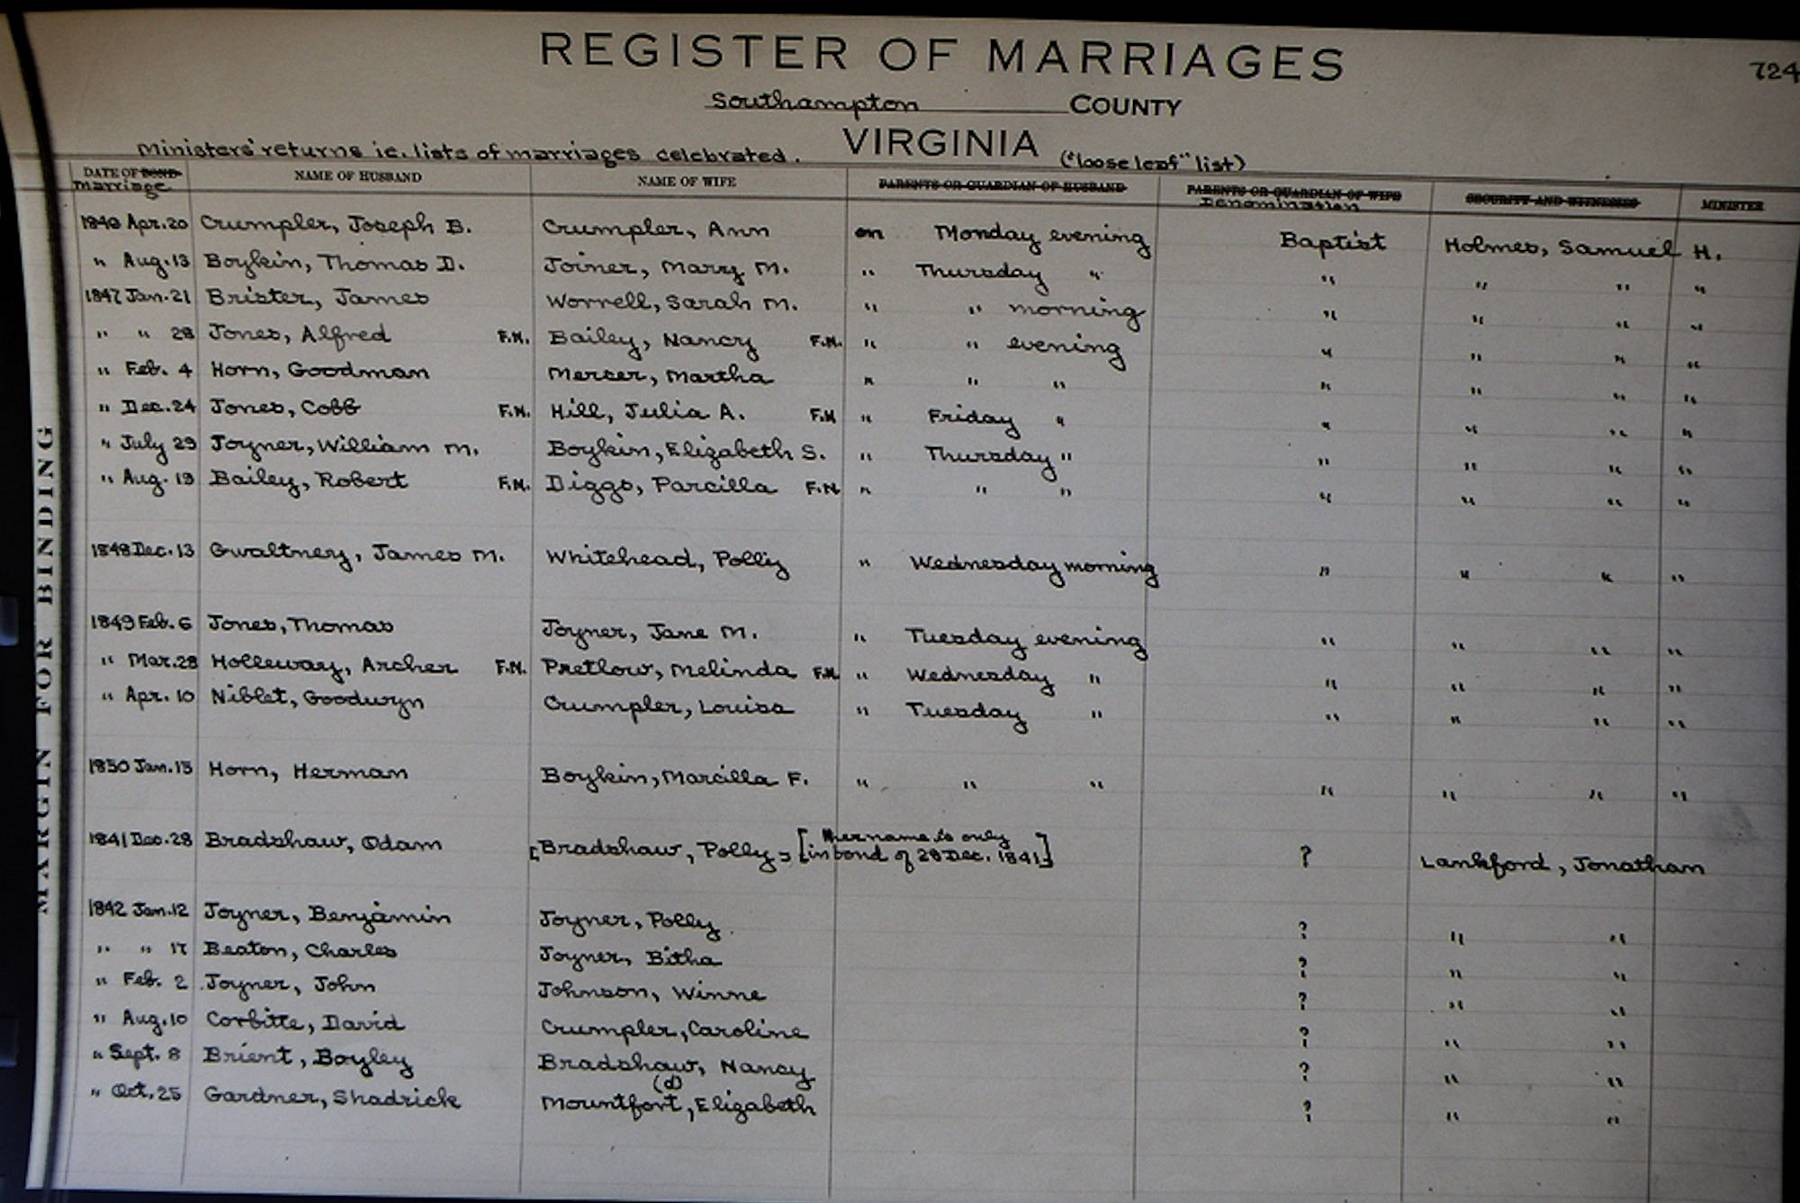 REGISTER OF MARRIAGES 724
Southampton COUNTY
VIRGINIA
Ministers' returns ie. lists of marriages celebrated. ("loose leaf" list)
DATE OF BOND Marriage NAME OF HUSBAND NAME OF WIFE PARENTS OR GUARDIAN OF HUSBAND PARENTS OR GUARDIAN OF WIFE Denomination SECURITY AND WITNESSES MINISTER
Apr. 20 Crumpler, Joseph B. Crumpler, Ann on Monday evening Baptist Holmes, Samuel H.
" Aug. 13 Boykin, Thomas D. Joiner, Marry M. " Thursday " " " " "
1847 Jan. 21 Brister, James Worrell, Sarah M. " " morning " " " "
" " 28 Jones, Alfred F.N. Bailey, Nancy F.N. " " evening " " " "
" Feb. 4 Horn, Goodman Mercer, Martha " " " " " " "
" Dec. 24 Jones, Cobb F.N. Hill, Julia A. F.N " Friday " " " " "
" July 29 Joyner, William M. Boykin, Elizabeth S. " Thursday " " " " "
" Aug. 19 Bailey, Robert F.N. Diggs, Parcilla F.N. " " " " " " "
1848 Dec. 13 Gwaltney, James M. Whitehead, Polly " Wednesday morning " " " "
1849 Feb. 6 Jones, Thomas Joyner, Jane M. " Tuesday evening " " " "
" Mar. 28 Holleway, Archer F.N. Pretlow, Melinda F.N. " Wednesday " " " " "
" Apr. 10 Niblet, Goodwyn Crumpler, Louisa " Tuesday " " " " "
1850 Jan. 15 Horn, Herman Boykin, Marcilla F. " " " " " " "
1841 Dec. 28 Bradshaw, Odam [Bradshaw, Polly] [Her name is only in bond of 28 Dec. 1841] ? Lankford, Jonathan
1842 Jan. 12 Joyner, Benjamin Joyner, Polly ? " "
" " 17 Beaton, Charles Joyner, Bitha ? " "
" Feb. 2 Joyner, John Johnson, Winne ? " "
" Aug. 10 Corbitte, David Crumpler, Caroline ? " "
" Sept. 8 Brient, Boyley Bradshaw, Nancy ? " "
(d)
" Oct. 25 Gardner, Shadrick Mountfort, Elizabeth ? " "
MARGIN FOR BINDING